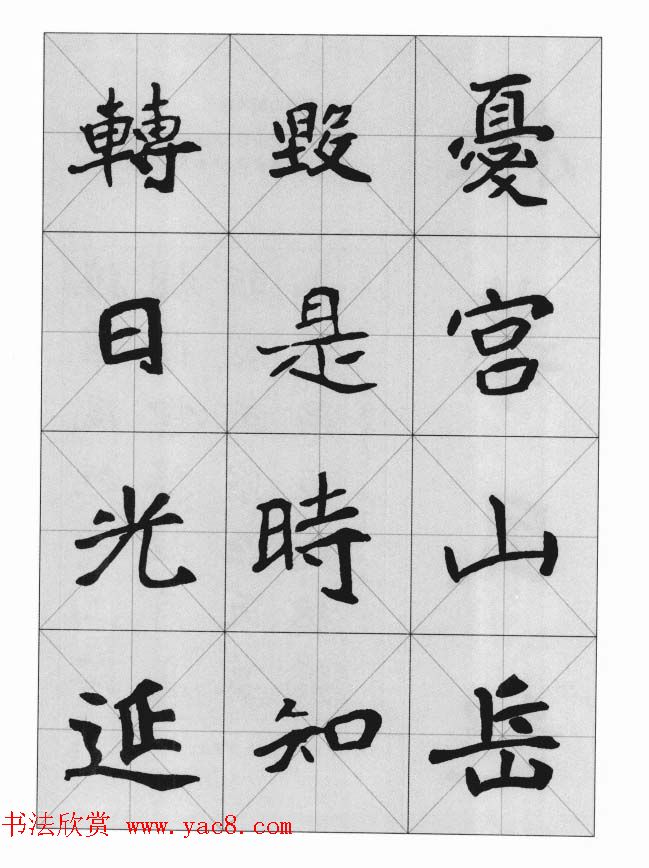 憂宮山岳
毀是時知
轉日光延
书法欣赏 www.yac8.com